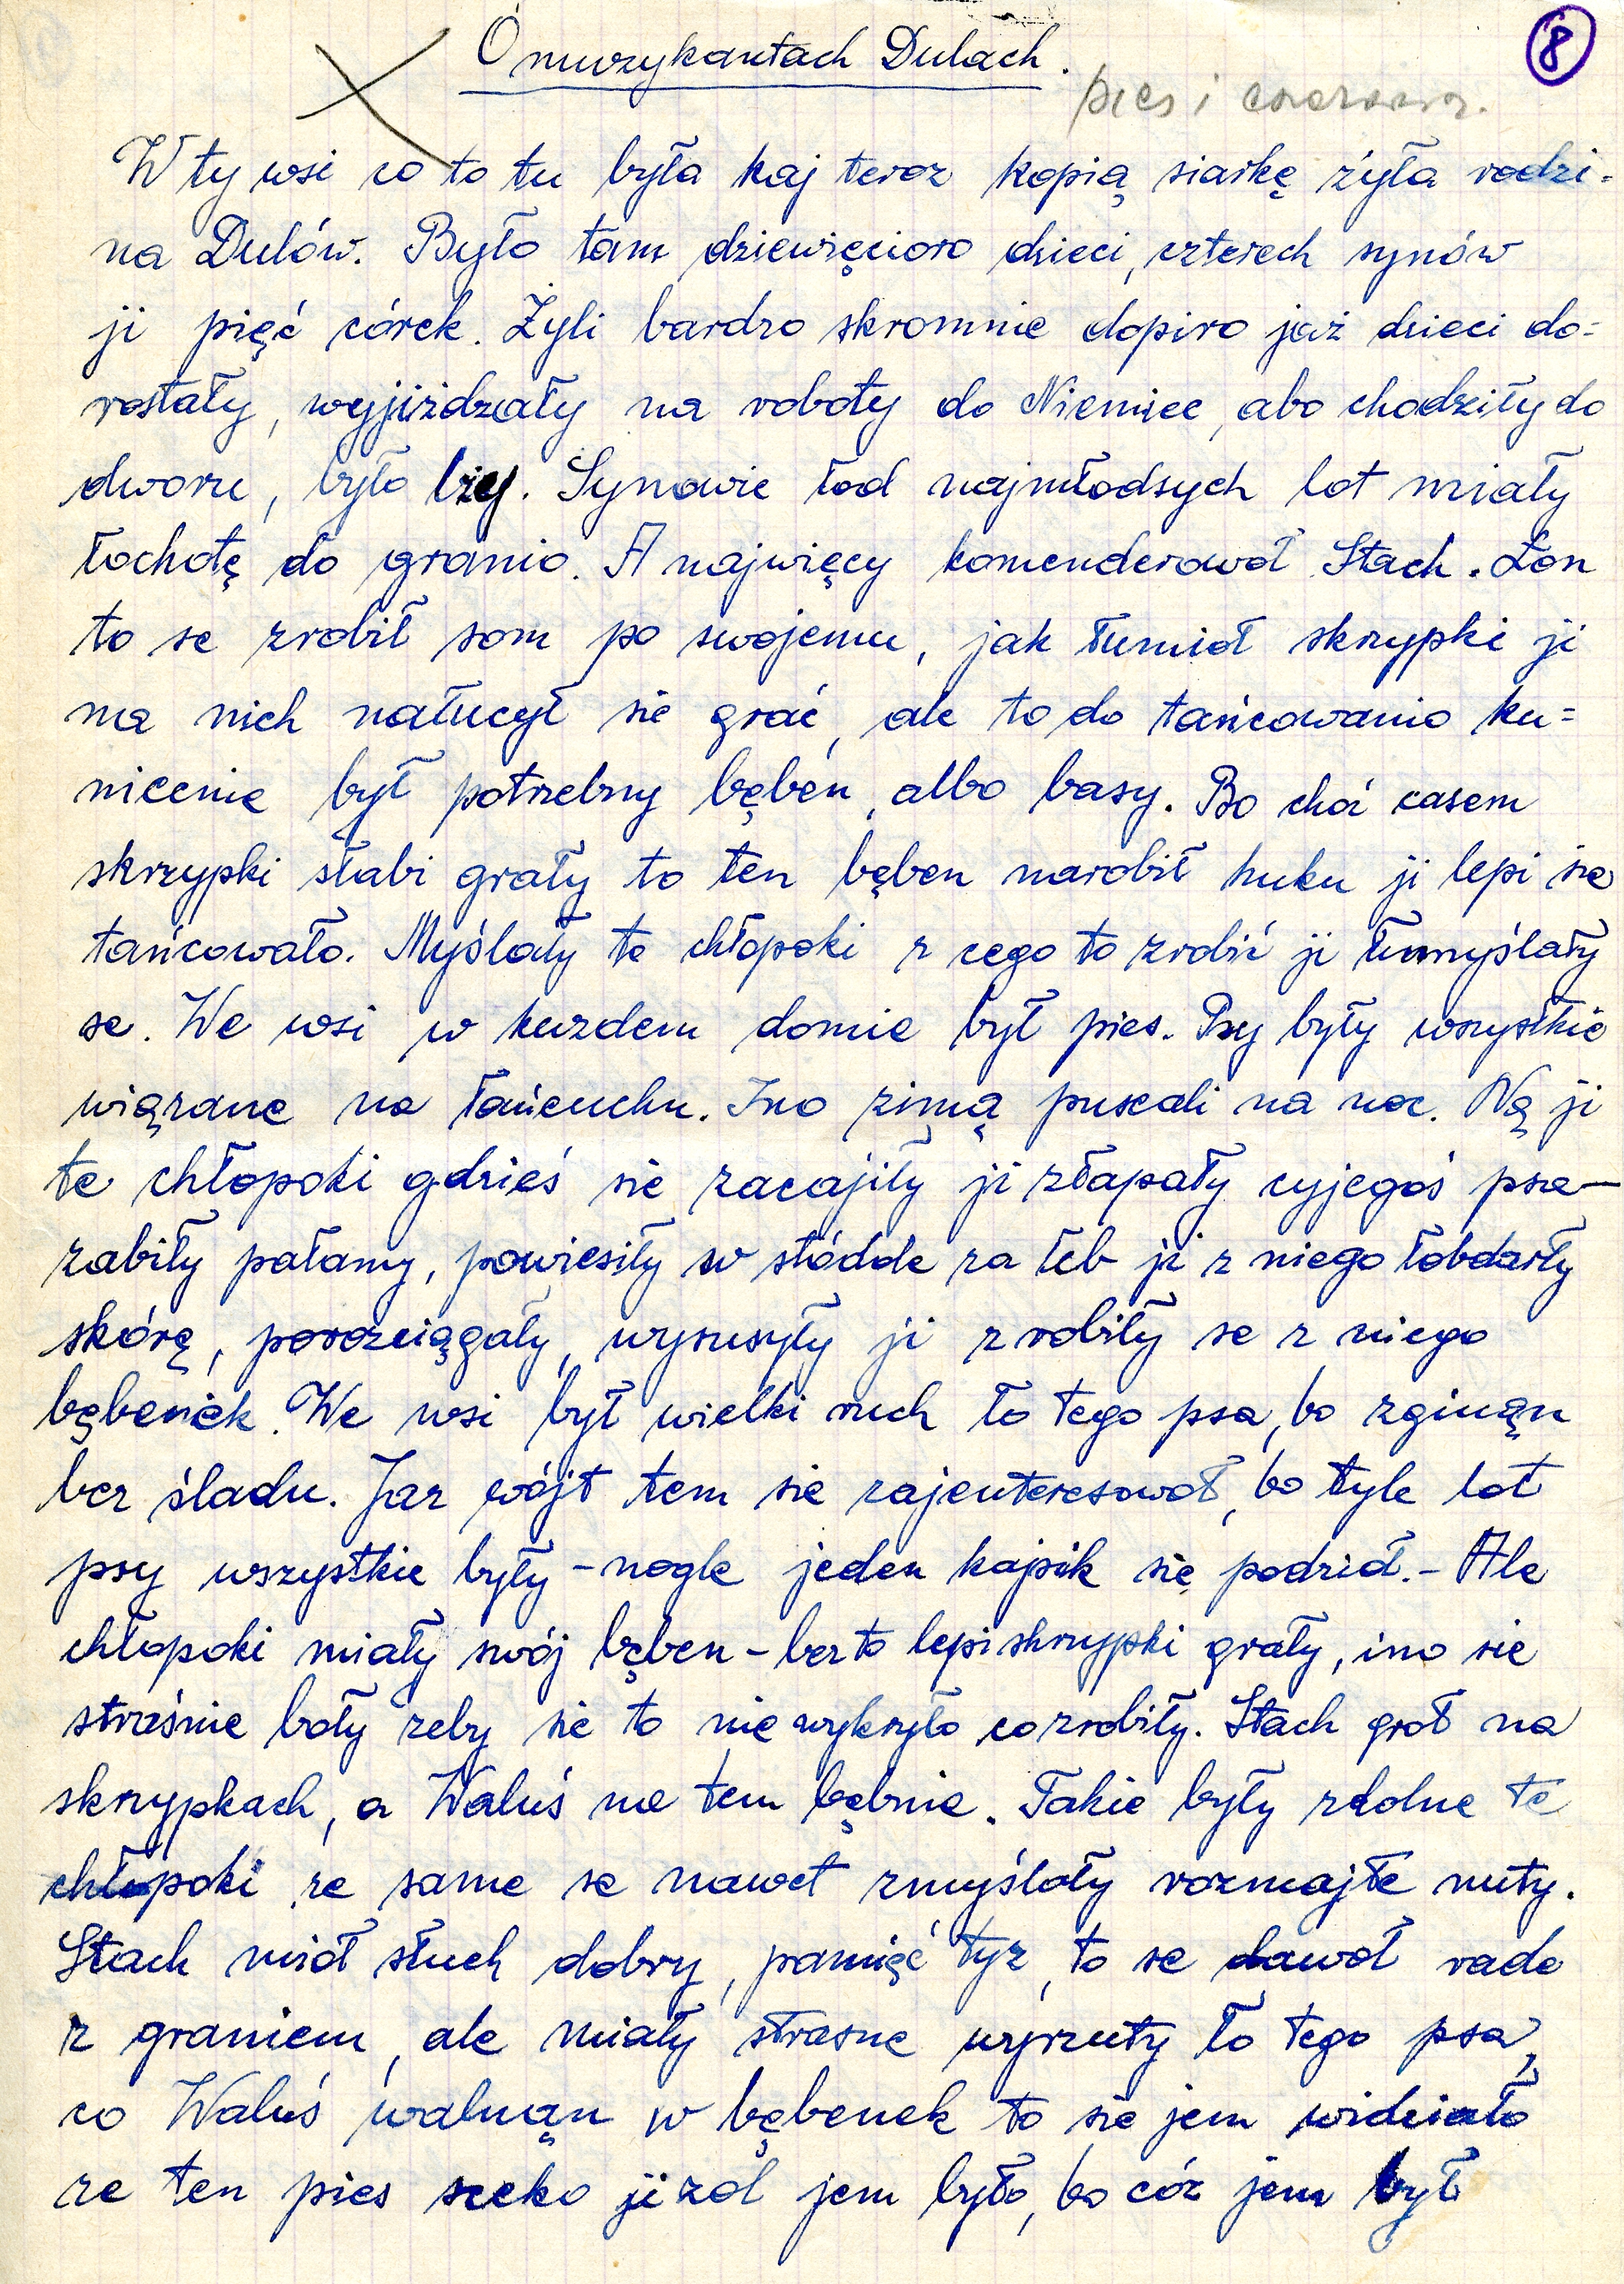 8
O muzykantach Dulach.
pies i
W ty wsi co to tu była kaj teroz kopią siarkę żyła rodzi-
na Dulów. Było tam dziewięcioro dzieci, czterech synów
ji pięć córek. Żyli bardzo skromnie dopiro jaż dzieci do=
rostały, wyjiżdzały na roboty do Niemiec, abo chodziły do
dworu, było lży. Synowie łod najmłodsych lot miały
łochotę do granio. A najwięcy komenderowoł Stach. Łon
to se zrobił som po swojemu, jak łumioł skrzypki ji
na nich nałucył sie grać, ale to do tańcowanio ku=
niecenie był potrzebny bęben, albo basy. Bo choć casem
skrzypki słabi grały to ten bęben narobił huku ji lepi sie
tańcowało. Myślały te chłopoki z cego to zrobić ji łumyślały
se. We wsi w kuzdem domie był pies. Psy były wszyśtkie
wiązane na łańcuchu. Ino zimą puscali na noc. Ną ji
te chłopoki gdzieś sie zacajiły ji złapały cyjegoś psa—
zabiły pałamy, powiesiły w stódole za łeb ji z niego łobdarły
skórę, porozciągały, wysusyły ji zrobiły se z niego
bębenek. We wsi był wielki ruch ło tego psa, bo zginąn
bez śladu. Jaz wójt tem sie zajenteresowoł, bo tyle lot
psy wszystkie były – nogle jeden kajsik się podzioł. – Ale
chłopoki miały swój bęben – bez to lepi skrzypki grały, ino sie
straśnie boły zeby sie to nie wykryło co zrobiły. Stach groł na
skrzypkach, a Waluś na tem bębnie. Takie były zdolne te
chłopoki ze same se nawet zmyślały rozmajite nuty.
Stach mioł słuch dobry, pamięć tyz, to se dawoł rade
z graniem, ale miały strasne wyrzuty ło tego psa,
co Waluś walnąn w bębenek to sie jem widziało
ze ten pies sceko ji zol jem było, bo cóz jem był